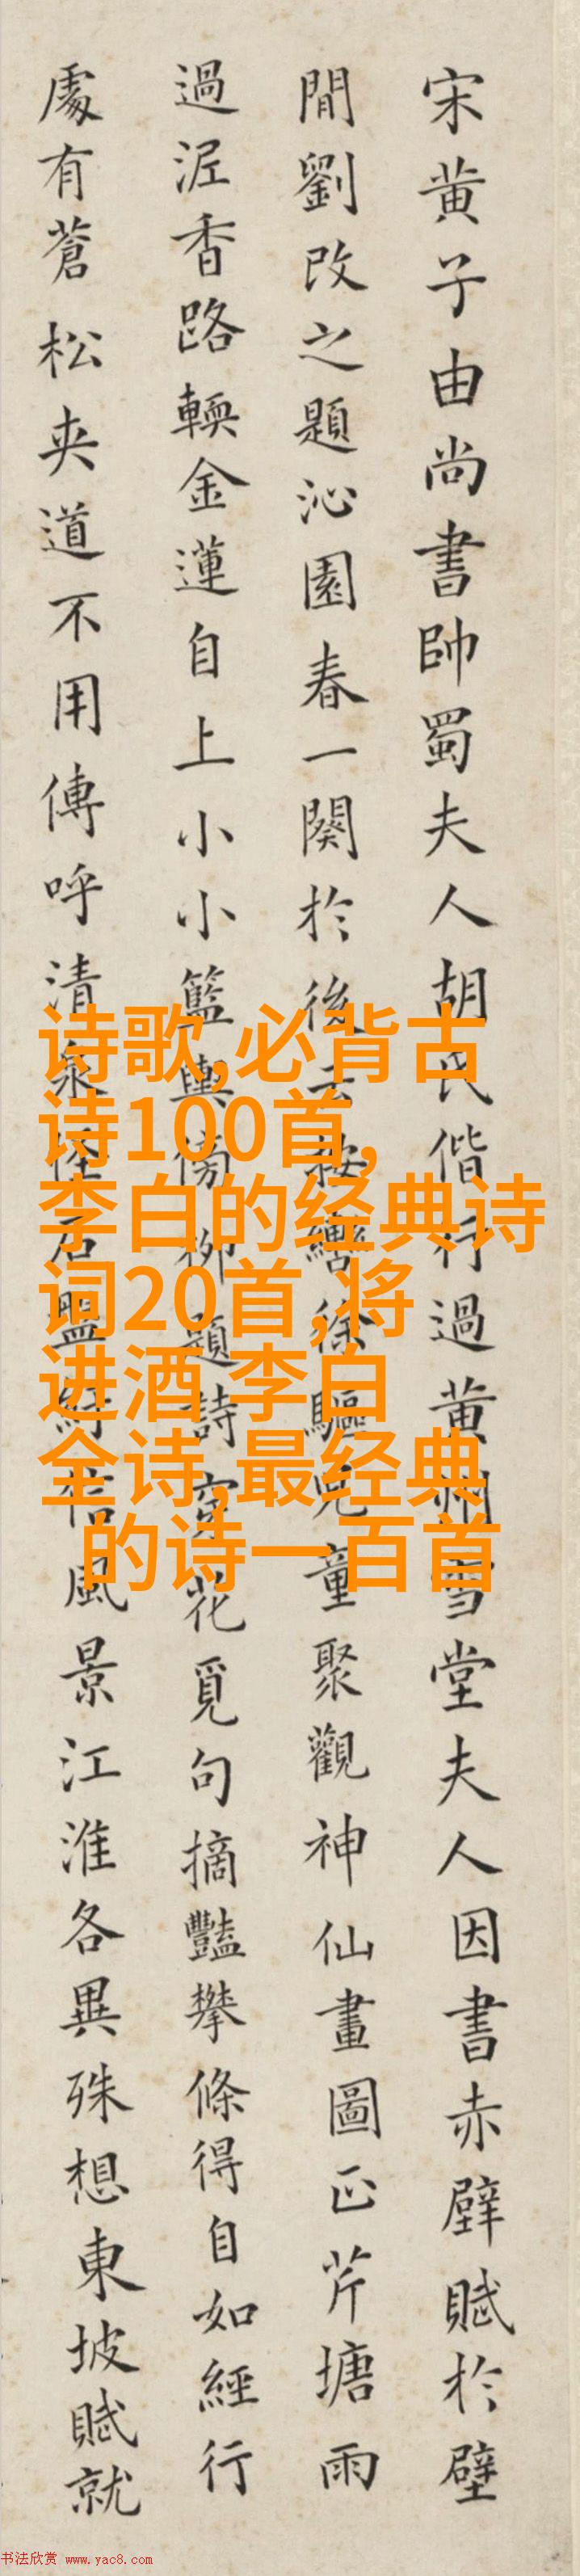 宋黄子由尚書帥蜀夫人胡氏偕行過黄州雪堂夫人因書赤壁賦於壁
間劉改之題沁園春一闋於後云按轡徐驅兒童聚觀神仙畫圖正芹塘雨
過泥香路輭金蓮自上小小籃輿傍柳題詩穿花覓句摘豔攀條得自如經行
處有蒼松夾道不用傳呼清泉怪石盤紆信風景江淮各異殊想東坡賦就
诗歌,必背古
诗100首,
李白的经典诗
词20首,将
进酒 李白
全诗,最经典
的诗一百首
书法欣赏 www.yac8.com